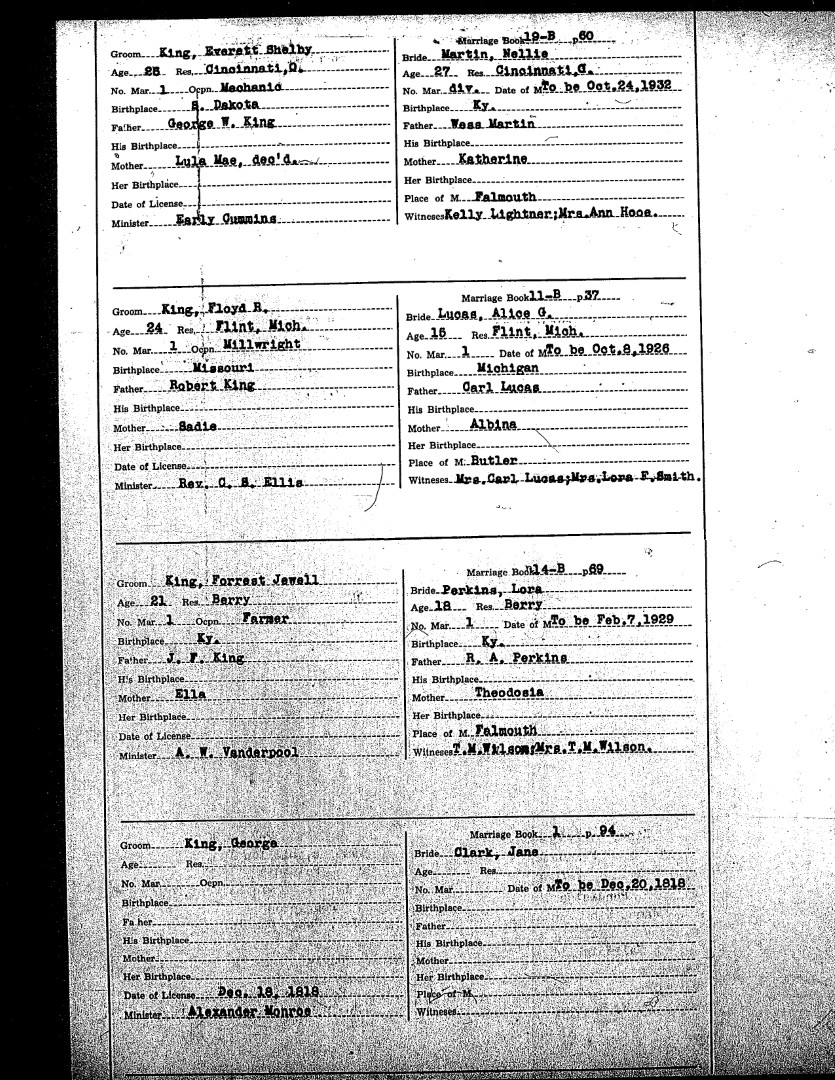 Marriage Book 19-B p 60
Groom King, Everett Shelby
Bride Martin, Nellie
Age 25 Res. Cincinnati, O.
Age 27 Res Cincinnati, O.
No. Mar. 1 Ocpn. Mechanic
No. Mar. div. Date of M To be Oct.24,1932
Birthplace S. Dakota
Birthplace Ky.
Father George W. King
Father Wess Martin
His Birthplace
His Birthplace
Mother Lula Mae, dec'd.
Mother Katherine
Her Birthplace
Her Birthplace
Date of License
Place of M. Falmouth
Minister Early Cummins
Witneses Kelly Lightner;Mrs.Ann Hoge.
Marriage Book 11-B p. 37
Groom King, Floyd R.
Bride Lucas, Alice G.
Age 24 Res. Flint, Mich.
Age 16 Res Flint, Mich.
No. Mar. 1 Ocpn. Millwright
No. Mar. 1 Date of M To be Oct.8,1926
Birthplace Missouri
Birthplace Michigan
Father Robert King
Father Carl Lucas
His Birthplace
His Birthplace
Mother Sadie
Mother Albina
Her Birthplace
Her Birthplace
Date of License
Place of M. Butler
Minister Rev. C. S. Ellis
Witneses Mrs.Carl Lucas;Mrs.Lora F.Smith.
Marriage Book 14-B p 69
Groom King, Forrest Jewell
Bride Perkins, Lora
Age 21 Res Berry
Age 18 Res. Berry
No. Mar. 1 Ocpn. Farmer
No. Mar. 1 Date of M To be Feb.7,1929
Birthplace Ky.
Birthplace Ky.
Father J. F. King
Father R. A. Perkins
His Birthplace
His Birthplace
Mother Ella
Mother Theodosia
Her Birthplace
Her Birthplace
Date of License
Place of M. Falmouth
Minister A. W. Vanderpool
Witneses T.M.Wilson;Mrs.T.M.Wilson.
Marriage Book 1 p. 94
Groom King, George
Bride Clark, Jane
Age Res.
Age Res.
No. Mar. Ocpn.
No. Mar. Date of M To be Dec.20,1818
Birthplace
Birthplace
Father
Father
His Birthplace
His Birthplace
Mother
Mother
Her Birthplace
Her Birthplace
Date of License Dec. 18, 1818
Place of M.
Minister Alexander Monroe
Witneses